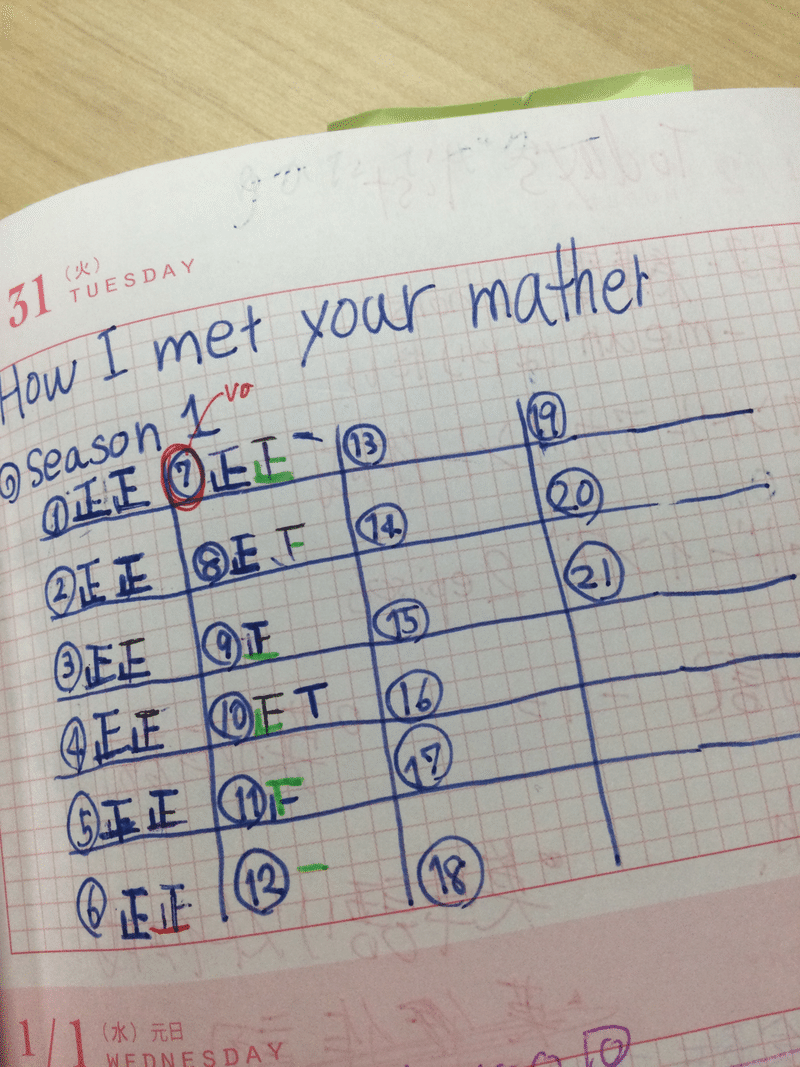 31 (火) TUESDAY
How I met your mather
① season 1 vo
① 正正 ⑦ 正正一 ⑬ ⑲
② 正正 ⑧ 正 ⑭ ⑳
③ 正正 ⑨ 正 ⑮ ㉑
④ 正正 ⑩ 正T ⑯
⑤ 正正 ⑪ ⑰
⑥ 正正 ⑫ 一 ⑱
1/1 (水) 元日 WEDNESDAY